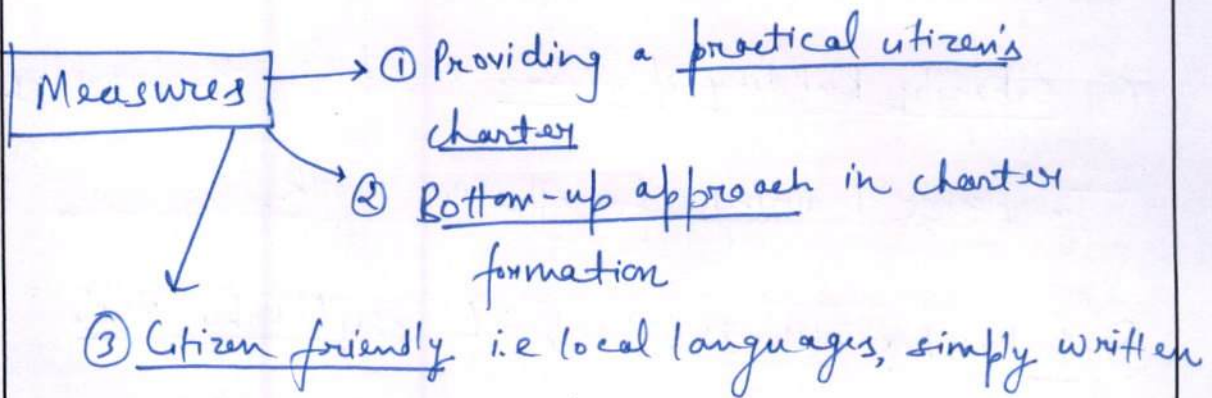 Measures
① Providing a practical citizen's
charter
② Bottom-up approach in charter
formation
③ Citizen friendly i.e local languages, simply written